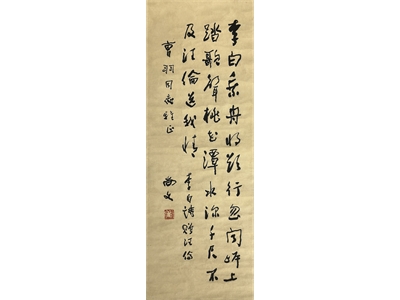 李白乘舟将欲行忽闻岸上
踏歌聲桃花潭水深千尺不
及汪倫送我情
李白诗赠汪倫
曹羽同志雅正